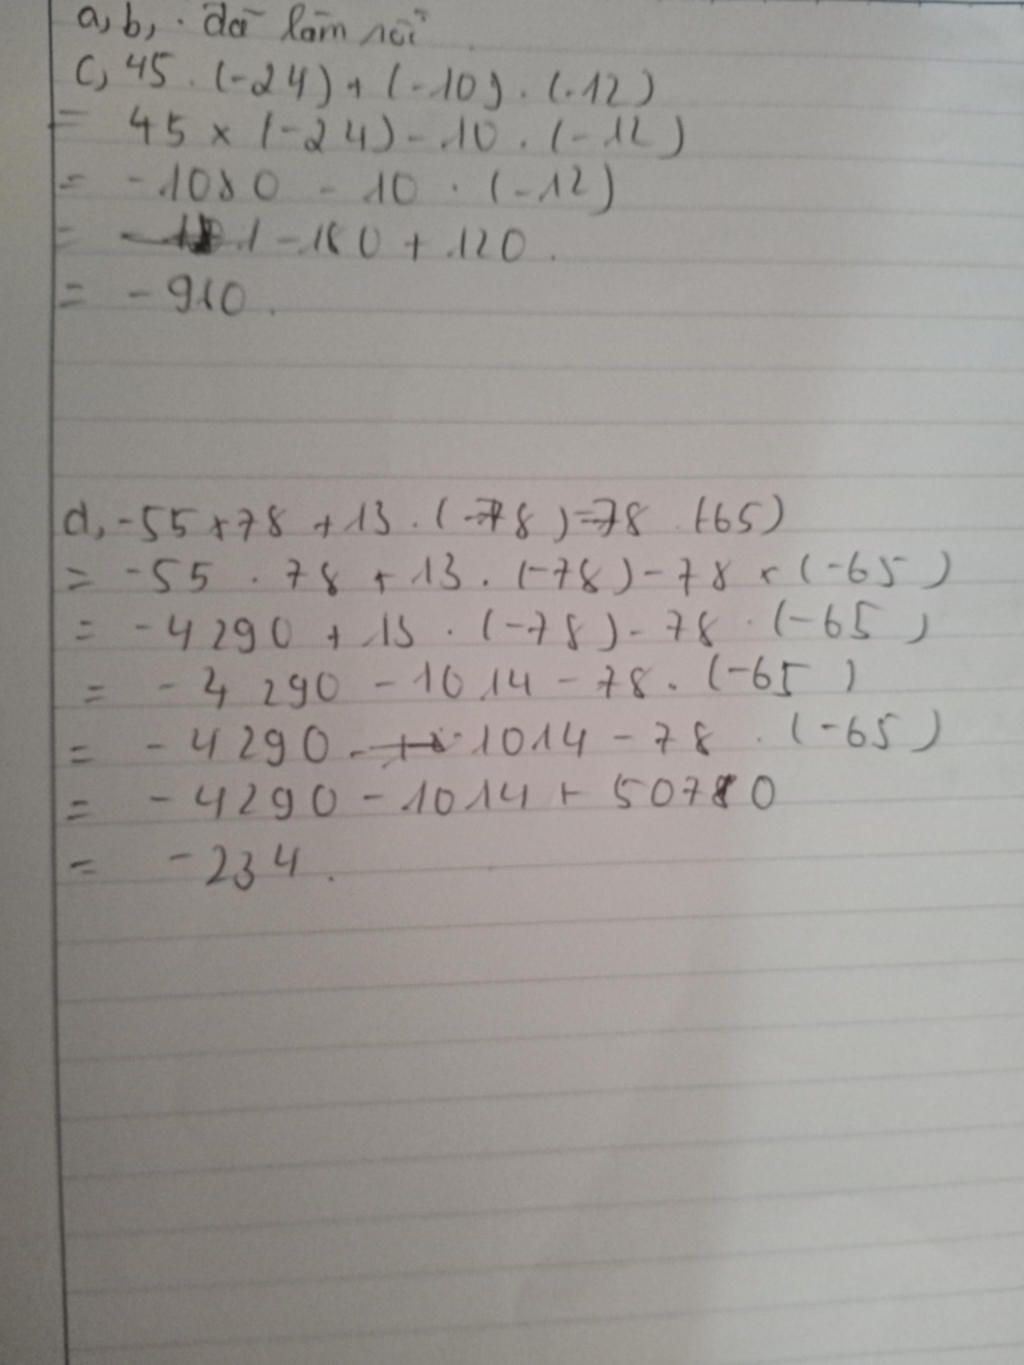 a, b, . đã làm rồi
c, 45 . (-24) + (-10) . (-12)
= 45 x (-24) - 10 . (-12)
= -1080 - 10 . (-12)
= 1 -180 + 120.
= -960.
d, -55 x 78 + 13 . (-78) - 78 . (-65)
= -55 . 78 + 13 . (-78) - 78 x (-65)
= -4290 + 13 . (-78) - 78 . (-65)
= -4290 - 1014 - 78. (-65)
= -4290 - 1014 - 78 . (-65)
= -4290 - 1014 + 5070
= -234.